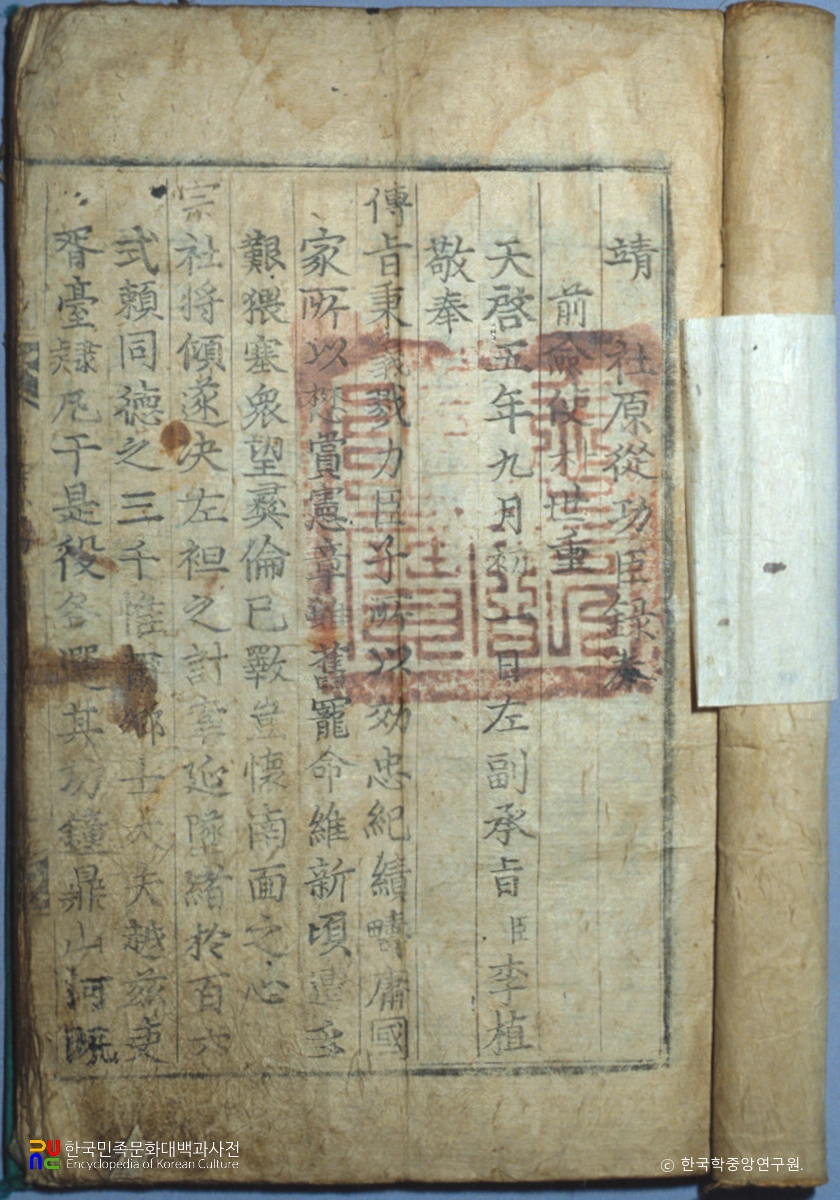 靖社原從功臣錄卷
前僉使朴世重
天啓五年九月初一日左副承旨臣李植
敬奉
傳旨秉義戮力臣子所以効忠紀績疇庸國
家所以懋賞憲章雖舊寵命維新頃遭
艱猥塞衆望彛倫已斁豈懷南面之心
宗社將傾遂決左袒之計率延墜緖於百六
式賴同德之三千惟爾鄕士大夫越玆吏
胥臺隷凡干是役各
其功鐘鼎山河旣
한국민족문화대백과사전
Encyclopedia of Korean Culture
© 한국학중앙연구원.